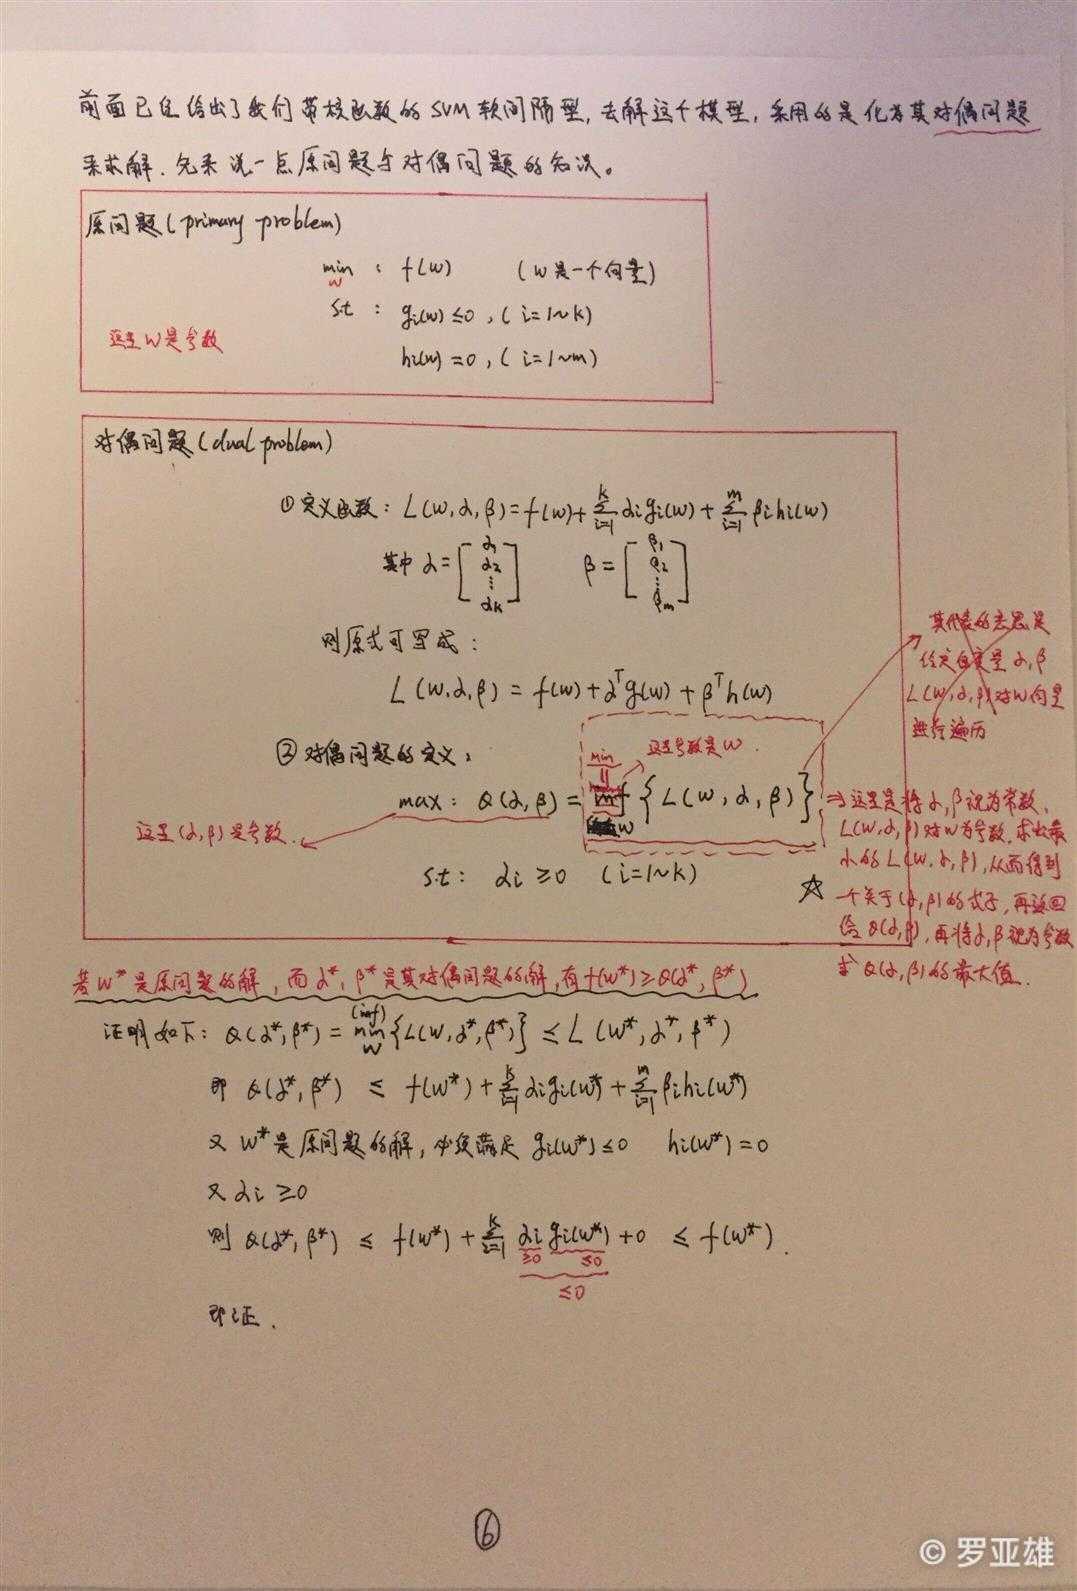 前面已经给出了我们带核函数的SVM软间隔型,去解这个模型,采用的是化为其对偶问题
来求解.先来说一点原问题与对偶问题的知识。
原问题(primary problem)
min w : f(w) (w是一个向量)
s.t : gi(w)≤0,(i=1~k)
这里w是参数
hi(w)=0,(i=1~m)
对偶问题(dual problem)
①定义函数: L(w,α,β)=f(w)+∑_{i=1}^{k} αigi(w)+∑_{i=1}^{m} βihi(w)
其中α=[α1 α2 ⋮ αk] β=[β1 β2 ⋮ βm]
则原式可写成:
L(w,α,β) = f(w)+α^T g(w)+β^T h(w)
其代表的意思是
给定自变量α,β
L(w,α,β)对w向量
进行遍历
②对偶问题的定义:
min
这里参数是w.
max: Q(α,β)=inf w {L(w,α,β)}
这里(α,β)是参数.
s.t: αi≥0 (i=1~k)
⇒这里是将α,β视为常数,
L(w,α,β)对w为参数,求出最
小的L(w,α,β),从而得到
☆一个关于(α,β)的式子,再返回
给Q(α,β),再将α,β视为参数
求Q(α,β)的最大值.
若w*是原问题的解,而α*,β*是其对偶问题的解,有f(w*)≥Q(α*,β*)
证明如下: Q(α*,β*)=min(inf) w {L(w,α*,β*)}≤L(w*,α*,β*)
即 Q(α*,β*) ≤ f(w*)+∑_{i=1}^{k} αigi(w*)+∑_{i=1}^{m} βihi(w*)
又 w*是原问题的解,必须满足 gi(w*)≤0 hi(w*)=0
又αi≥0
则 Q(α*,β*) ≤ f(w*)+∑_{i=1}^{k} αi gi(w*)+0 ≤ f(w*).
≥0 ≤0
≤0
即证.
⑥
© 罗亚雄